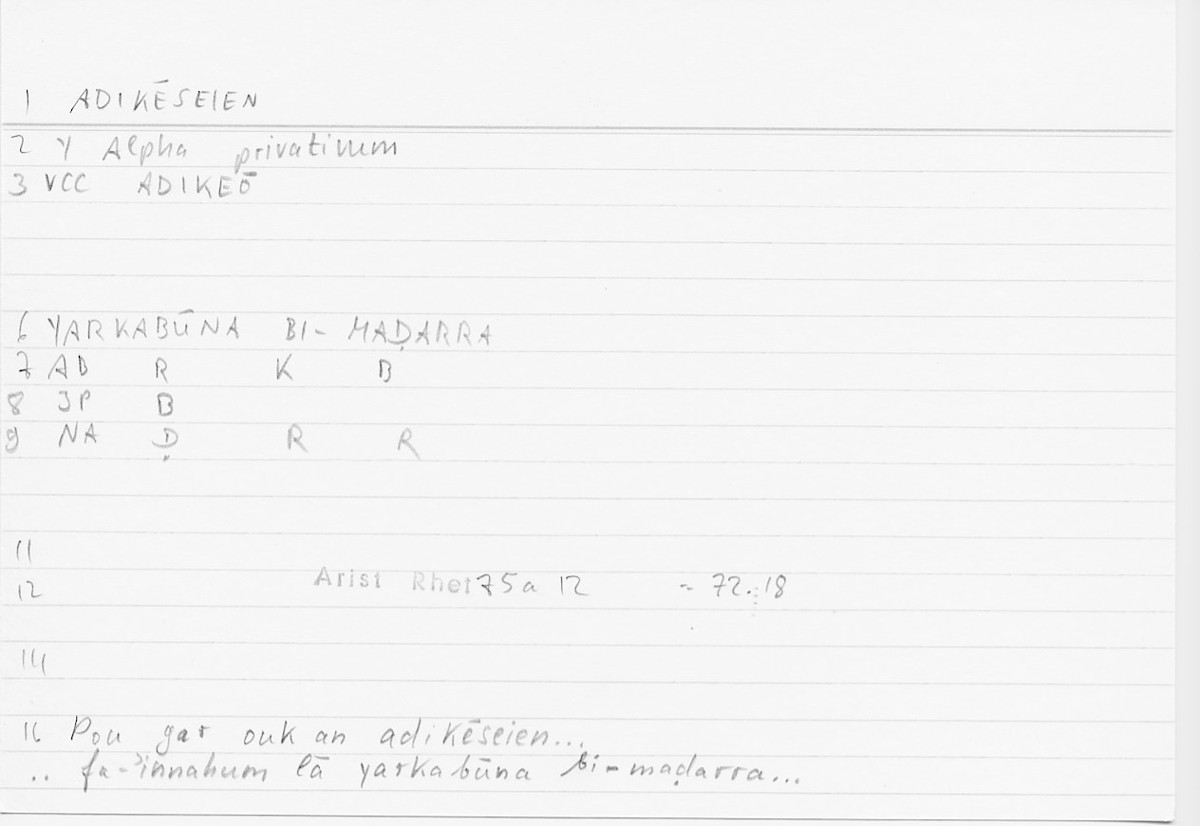 1 ADIKĒSEIEN
2 Y Alpha privativum
3 VCC ADIKEŌ
6 YARKABŪNA BI- MAḌARRA
7 AB R K B
8 JP B
9 NA Ḍ R R
11
12 Arist Rhet 75a 12 = 72.18
14
16 Pou gar ouk an adikēseien...
.. fa-ʾinnahum lā yarkabūna bi-maḍarra...